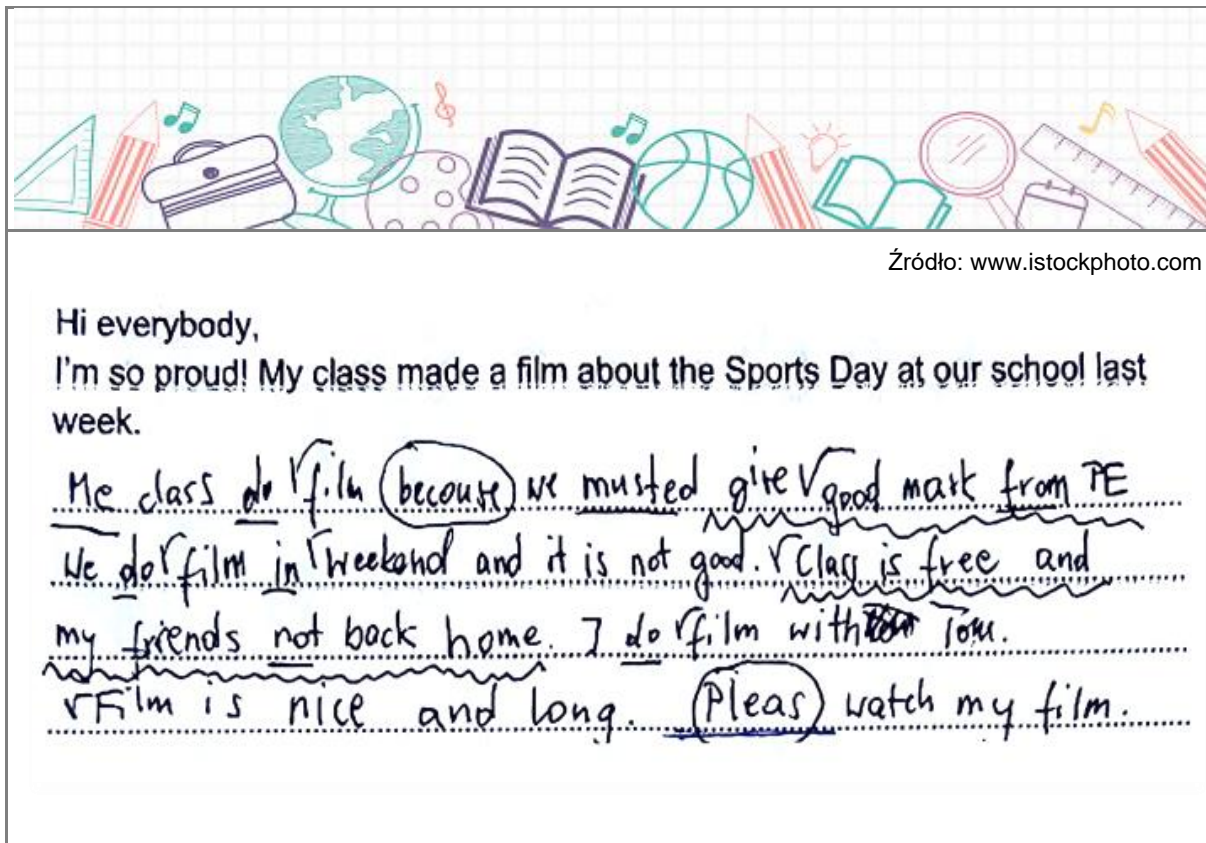 Źródło: www.istockphoto.com
Hi everybody,
I'm so proud! My class made a film about the Sports Day at our school last
week.
Me class do film becouse we musted give good mark from PE
We do film in weekend and it is not good. Class is free and
my friends not back home. I do film with Tom.
Film is nice and long. Pleas watch my film.